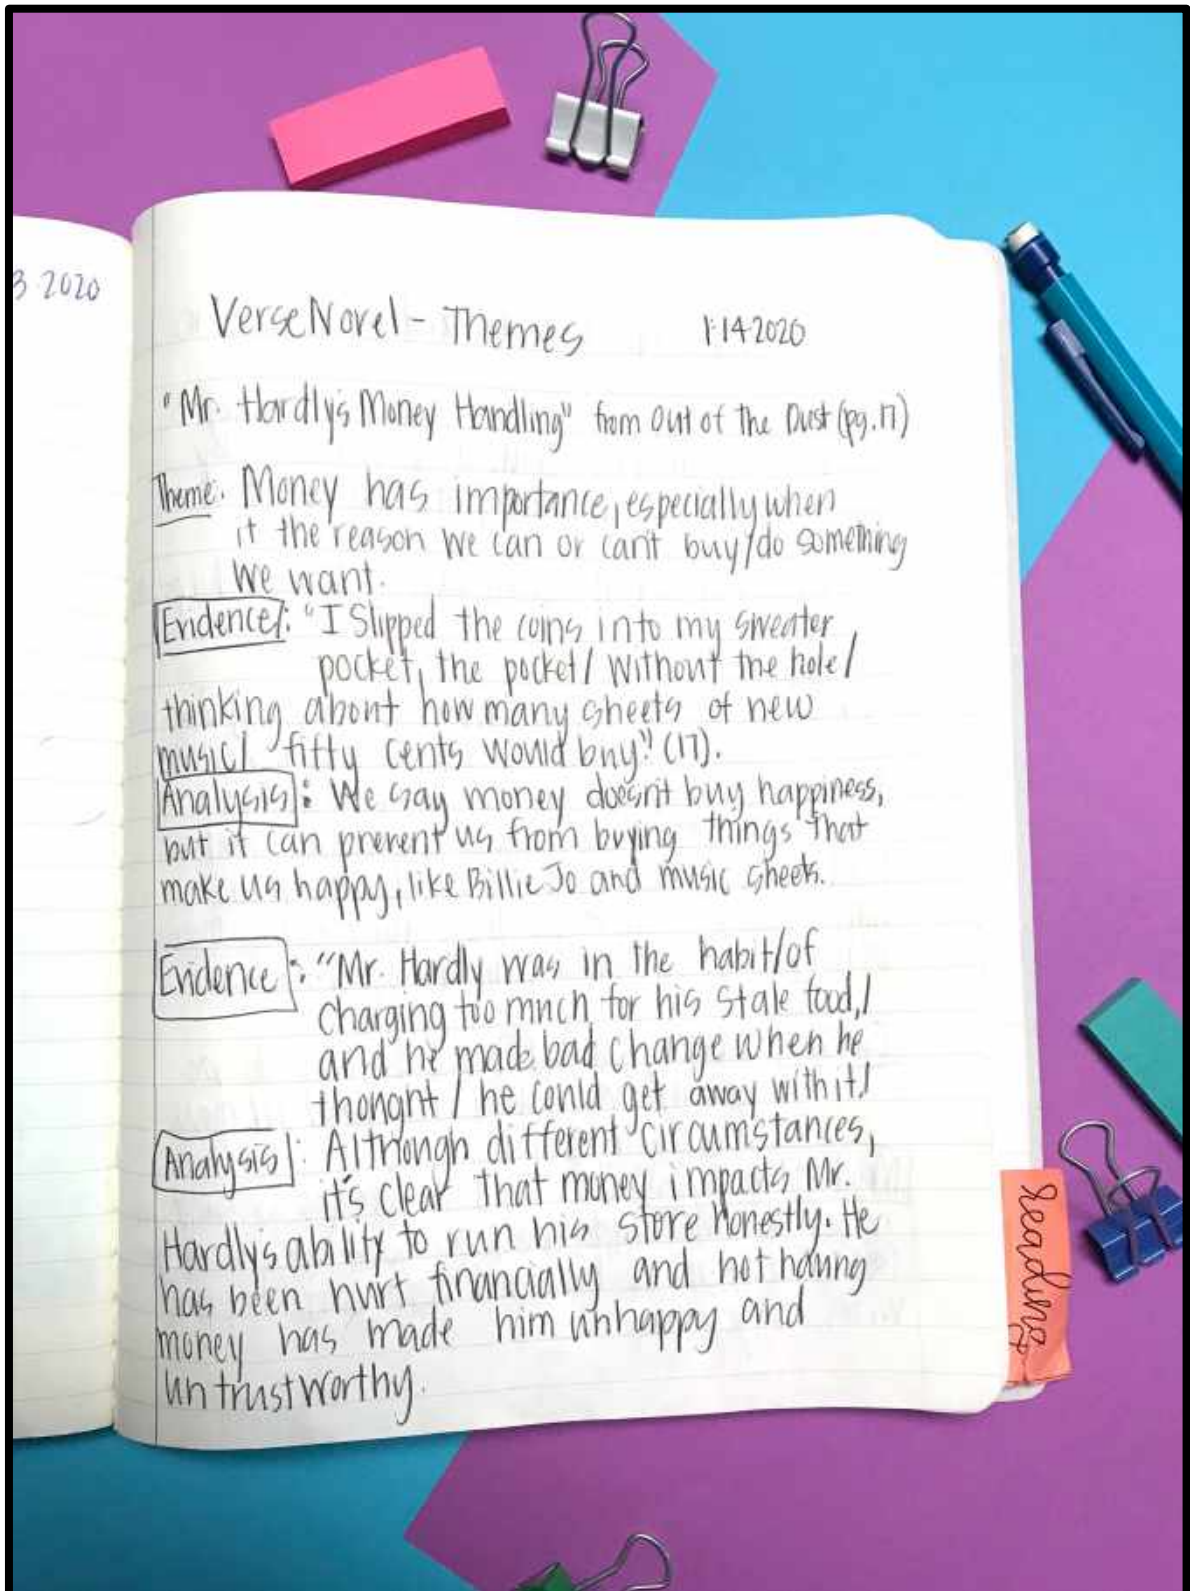 3 2020
Verse Novel - Themes 1·14·2020
"Mr. Hardly's Money Handling" from Out of the Dust (pg. 17)
Theme: Money has importance, especially when
it the reason we can or can't buy/do something
we want.
Evidence: "I Slipped the coins into my sweater
pocket, the pocket/ without the hole/
thinking about how many sheets of new
music/ fifty cents would buy." (17).
Analysis: We say money doesn't buy happiness,
but it can prevent us from buying things that
make us happy, like Billie Jo and music sheets.
Evidence: "Mr. Hardly was in the habit/of
charging too much for his stale food,/
and he made bad change when he
thought / he could get away with it/
Analysis: Although different circumstances,
it's clear that money impacts Mr.
Hardly's ability to run his store honestly. He
has been hurt financially and not having
money has made him unhappy and
untrustworthy.
reading